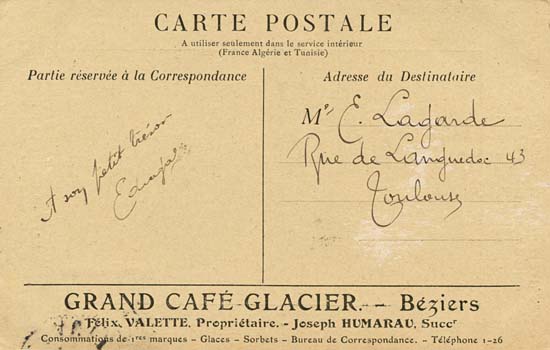 CARTE POSTALE
A utiliser seulement dans le service intérieur
(France Algérie et Tunisie)
Partie réservée à la Correspondance
A son petit trésor
Adresse du Destinataire
Mr E. Lagarde
Rue de Languedoc 43
Toulouse
GRAND CAFÉ GLACIER. — Béziers
Félix VALETTE, Propriétaire. - Joseph HUMARAU, Succr
Consommations de 1res marques - Glaces - Sorbets - Bureau de Correspondance. - Téléphone 1-26